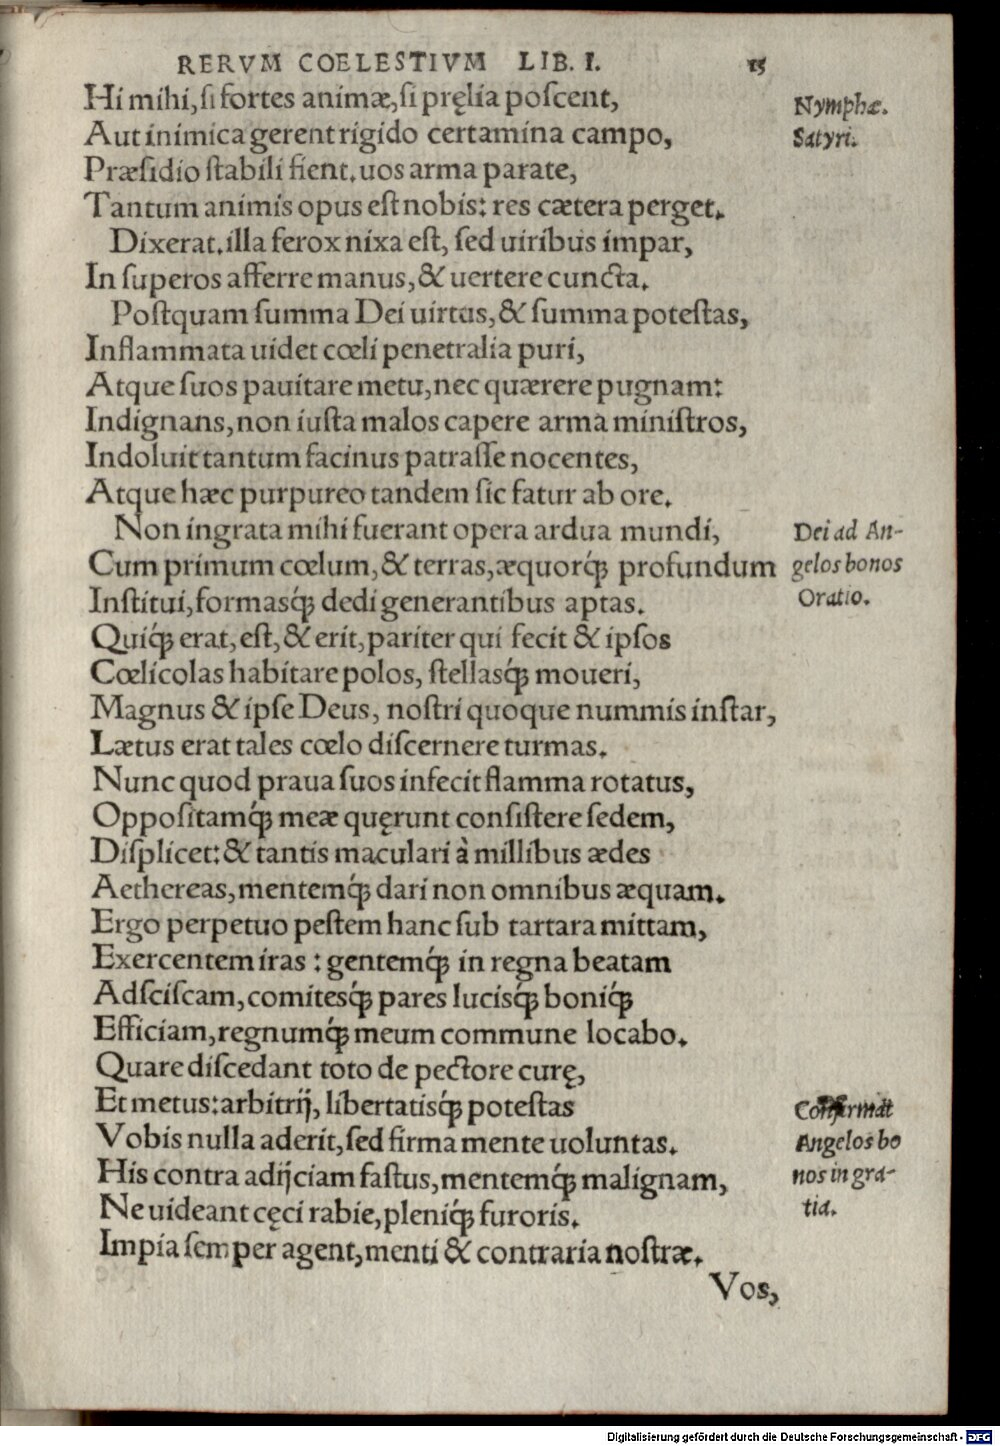 RERVM COELESTIVM LIB. I. 15
Hi mihi, si fortes animæ, si pręlia poscent,
Nymphæ.
Aut inimica gerent rigido certamina campo,
Satyri.
Præsidio stabili fient. uos arma parate,
Tantum animis opus est nobis: res cætera perget.
Dixerat. illa ferox nixa est, sed uiribus impar,
In superos afferre manus, & uertere cuncta.
Postquam summa Dei uirtus, & summa potestas,
Inflammata uidet cœli penetralia puri,
Atque suos pauitare metu, nec quærere pugnam:
Indignans, non iusta malos capere arma ministros,
Indoluit tantum facinus patrasse nocentes,
Atque hæc purpureo tandem sic fatur ab ore.
Non ingrata mihi fuerant opera ardua mundi,
Dei ad An-
Cum primum cœlum, & terras, æquorq́; profundum
gelos bonos
Institui, formasq́; dedi generantibus aptas.
Oratio.
Quiq́; erat, est, & erit, pariter qui fecit & ipsos
Cœlicolas habitare polos, stellasq́; moueri,
Magnus & ipse Deus, nostri quoque nummis instar,
Lætus erat tales cœlo discernere turmas.
Nunc quod praua suos infecit flamma rotatus,
Oppositamq́; meæ quęrunt consistere sedem,
Displicet: & tantis maculari à millibus ædes
Aethereas, mentemq́; dari non omnibus æquam.
Ergo perpetuo pestem hanc sub tartara mittam,
Exercentem iras : gentemq́; in regna beatam
Adsciscam, comitesq́; pares lucisq́; boniq́;
Efficiam, regnumq́; meum commune locabo.
Quare discedant toto de pectore curę,
Et metus: arbitrij, libertatisq́; potestas
Confirmat
Vobis nulla aderit, sed firma mente uoluntas.
Angelos bo
His contra adijciam fastus, mentemq́; malignam,
nos in gra-
Ne uideant cęci rabie, pleniq́; furoris.
tia.
Impia semper agent, menti & contraria nostræ.
Vos,
Digitalisierung gefördert durch die Deutsche Forschungsgemeinschaft - DFG